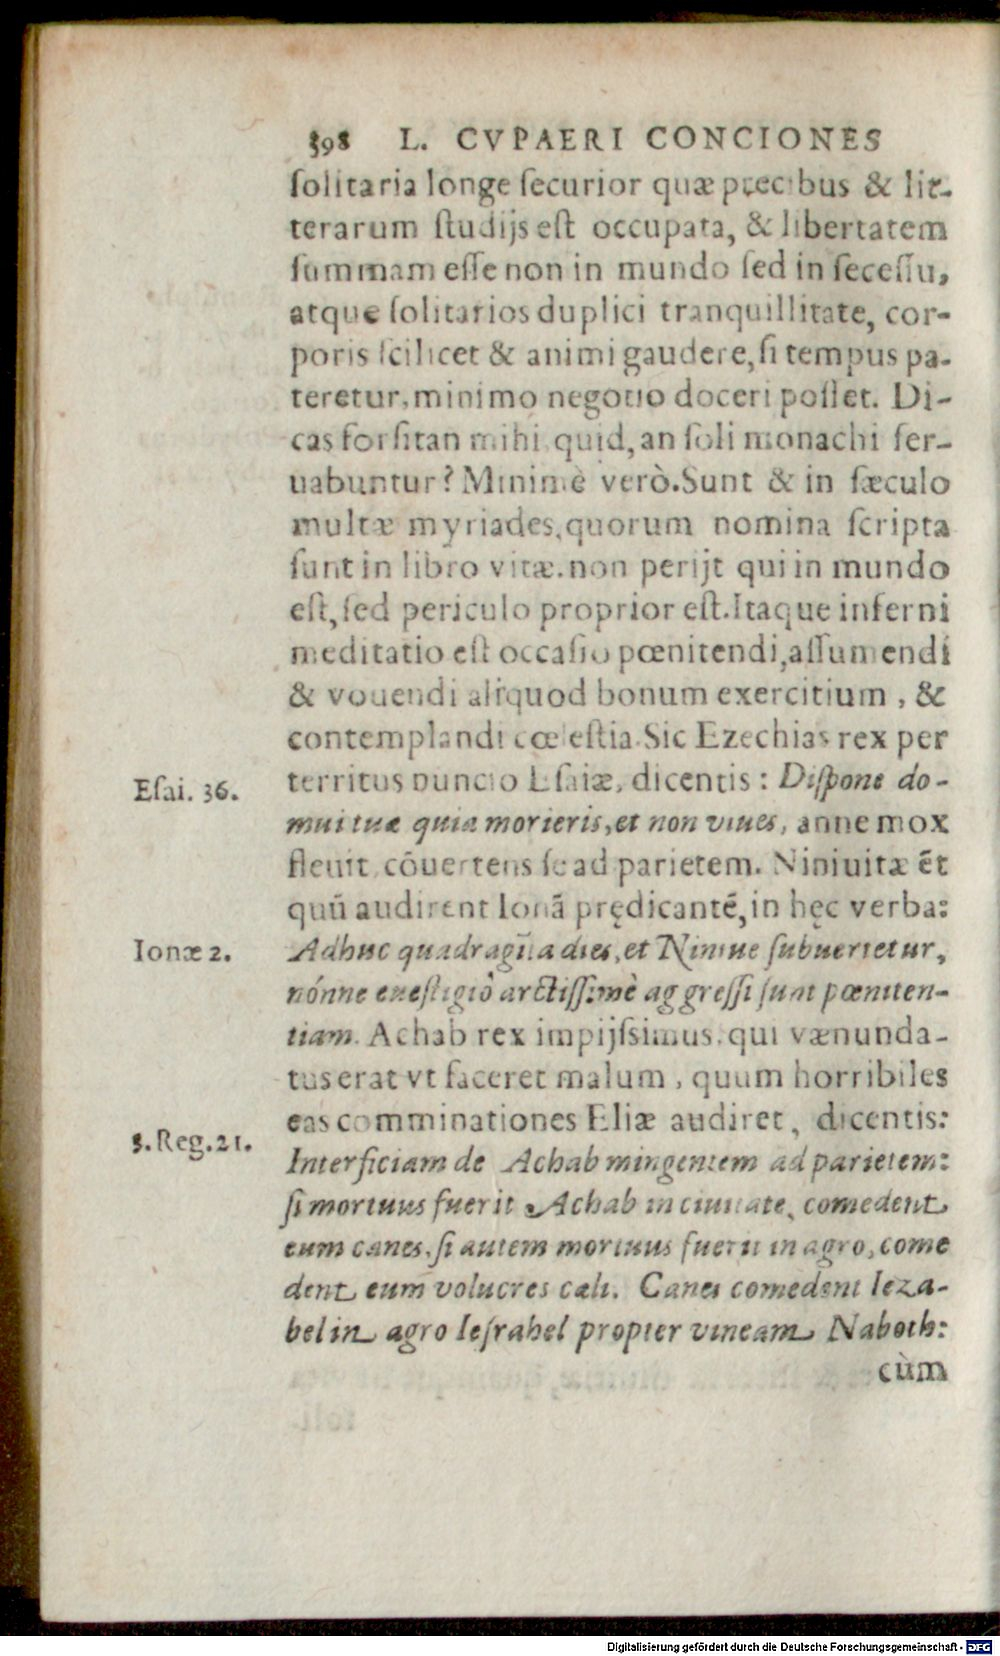 398 L. CVPAERI CONCIONES
ſolitaria longe ſecurior quæ precibus & lit-
terarum ſtudijs eſt occupata, & libertatem
ſummam eſſe non in mundo ſed in ſeceſſu,
atque ſolitarios duplici tranquillitate, cor-
poris ſcilicet & animi gaudere, ſi tempus pa-
teretur, minimo negotio doceri poſſet. Di-
cas forſitan mihi quid, an ſoli monachi ſer-
uabuntur? Minimè verò. Sunt & in ſæculo
multæ myriades, quorum nomina ſcripta
ſunt in libro vitæ. non perijt qui in mundo
eſt, ſed periculo proprior eſt. Itaque inferni
meditatio eſt occaſio pœnitendi, aſſumendi
& vouendi aliquod bonum exercitium, &
contemplandi cœleſtia. Sic Ezechias rex per
territus nuncio Eſaiæ, dicentis: Diſpone do-
Eſai. 36.
mui tuæ quia morieris, et non viues, anne mox
fleuit cōuertens ſe ad parietem. Niniuitæ ēt
quū audirent Ionā prędicantē, in hęc verba:
Ionæ 2.
Adhuc quadragīta dies, et Niniue ſubuertetur,
nónne eueſtigiò arctiſſimè aggreſſi ſunt pœniten-
tiam. Achab rex impijſsimus, qui vænunda-
tus erat vt faceret malum, quum horribiles
eas comminationes Eliæ audiret, dicentis:
3. Reg. 21.
Interficiam de Achab mingentem ad parietem:
ſi mortuus fuerit Achab in ciuitate, comedent
eum canes, ſi autem mortuus fuerit in agro, come
dent eum volucres cæli. Canes comedent Ieza-
bel in agro Ieſrahel propter vineam Naboth:
cùm
Digitalisierung gefördert durch die Deutsche Forschungsgemeinschaft - DFG